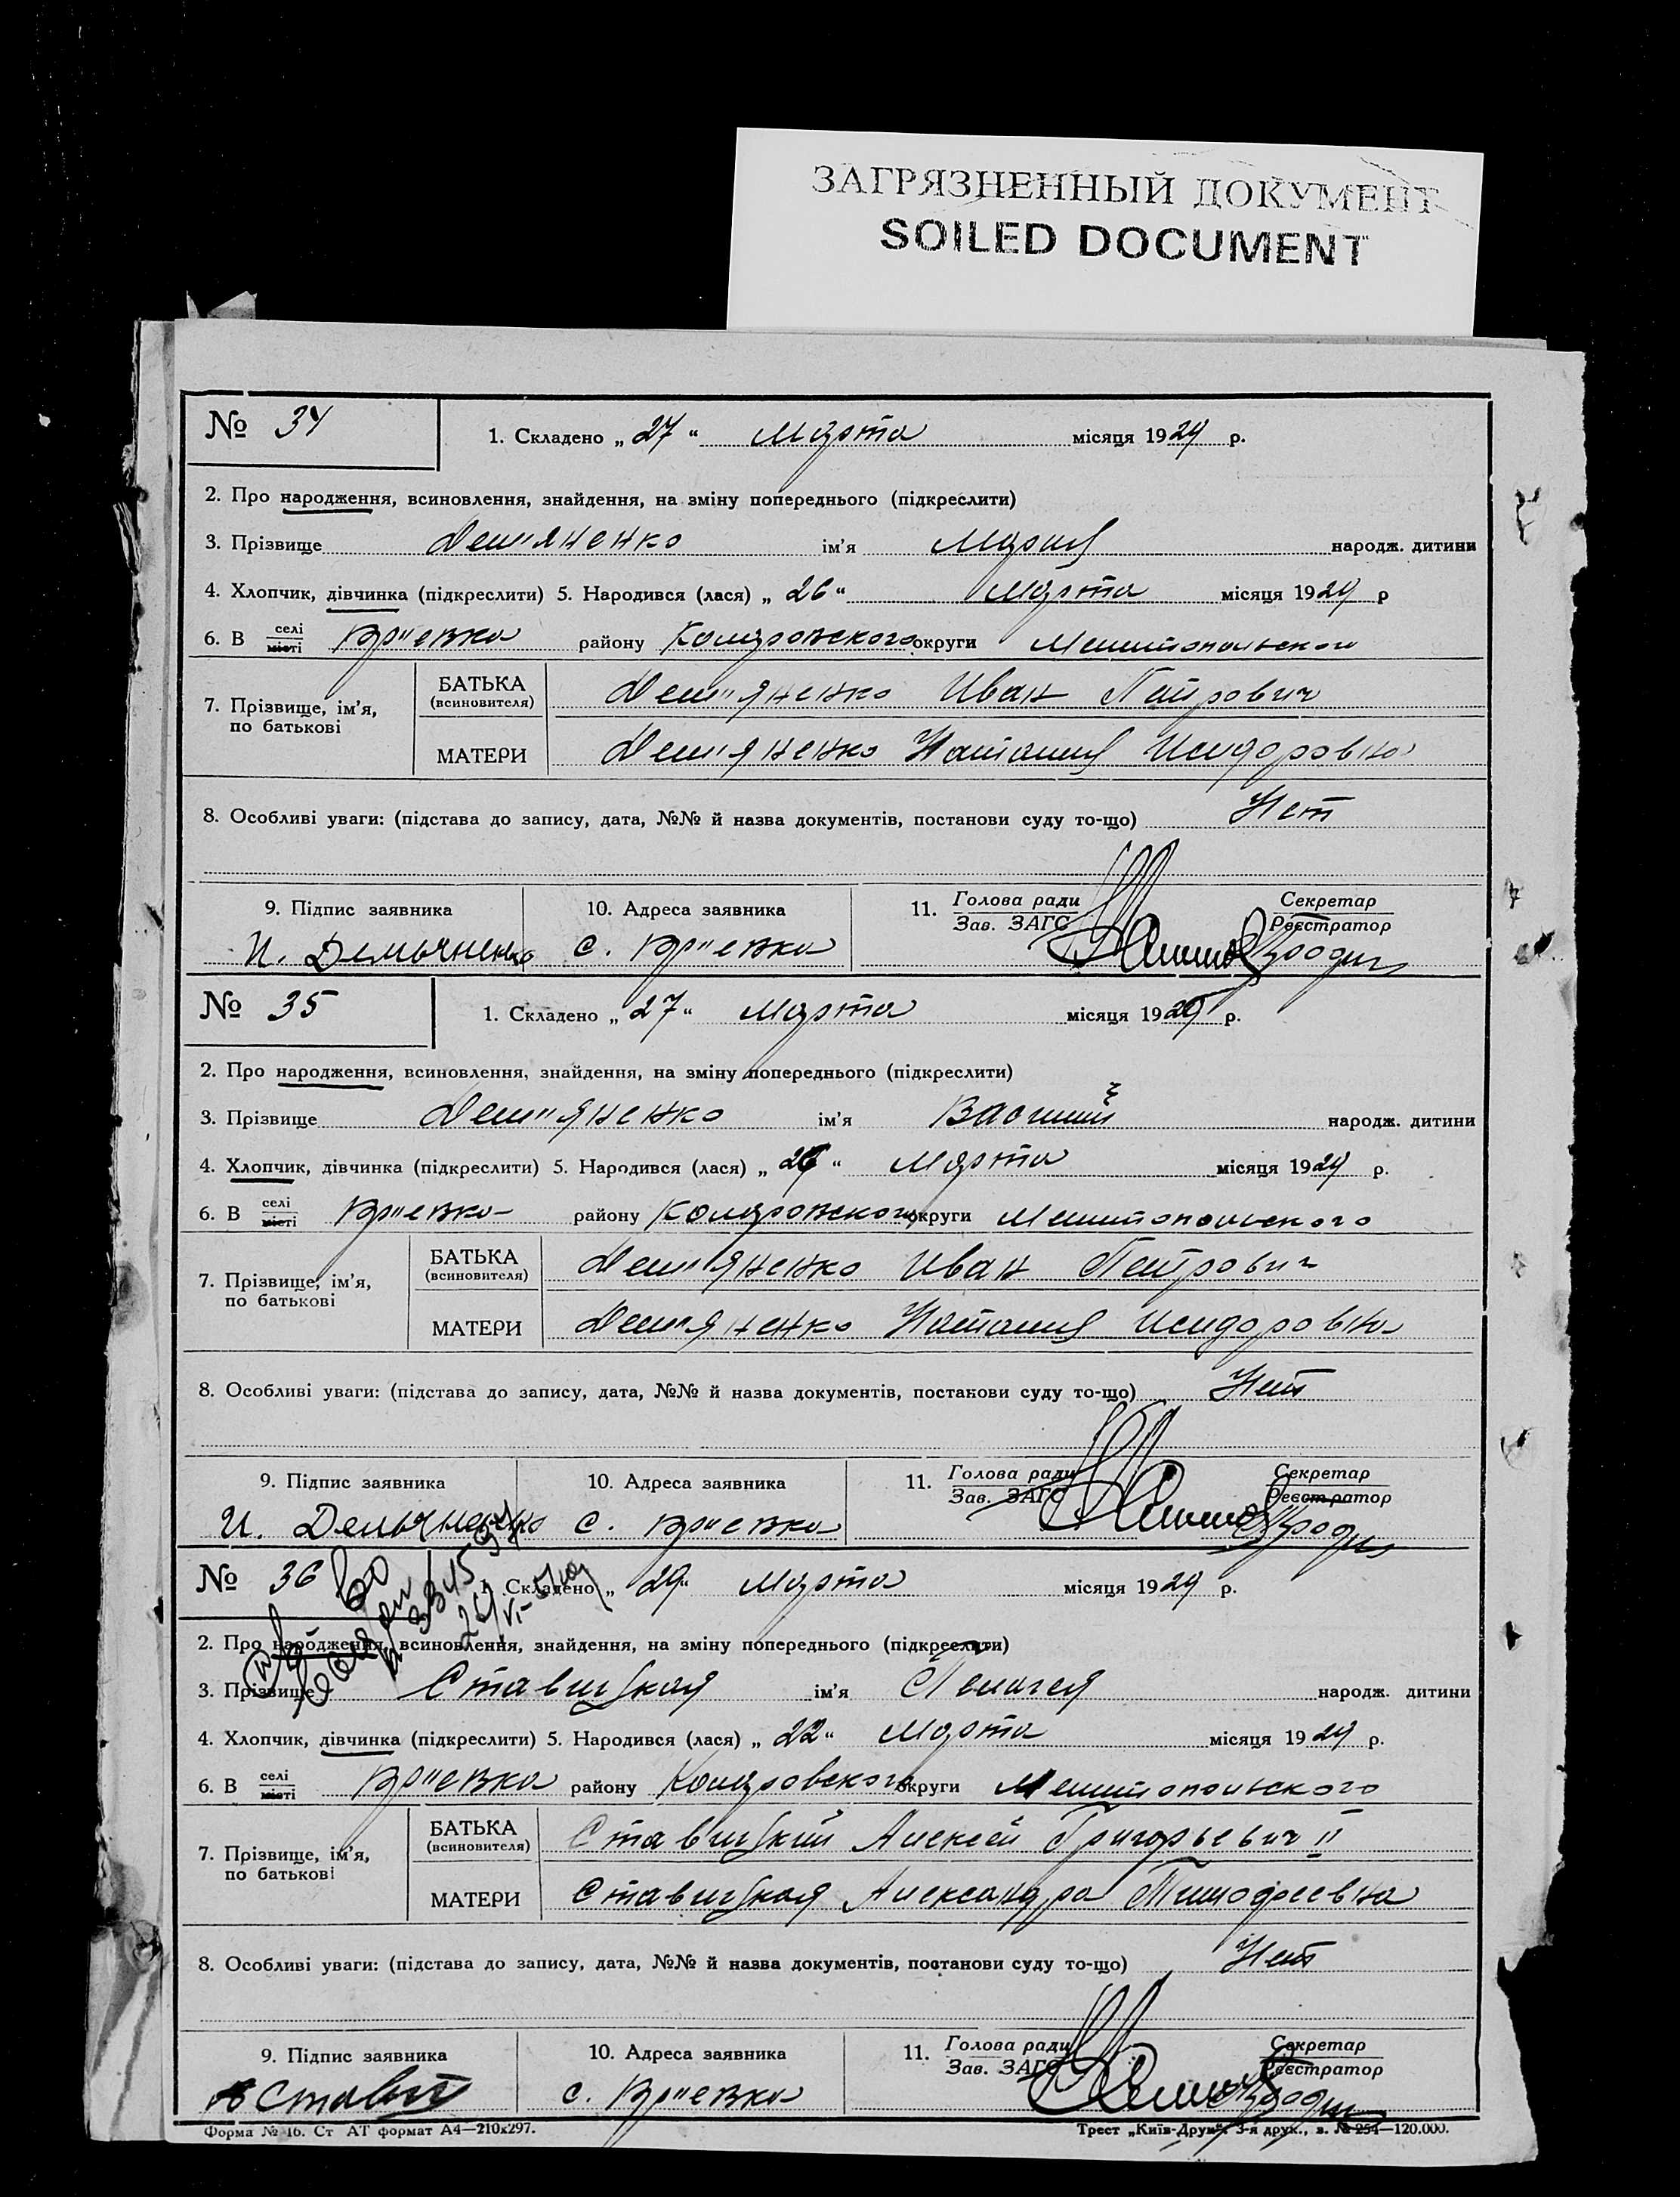 ЗАГРЯЗНЕННЫЙ ДОКУМЕНТ
SOILED DOCUMENT
№ 34
1. Складено „ 27 “ Марта місяця 1929 р.
2. Про народження, всиновлення, знайдення, на зміну попереднього (підкреслити)
3. Прізвище Дем"яненко ім’я Мария народж. дитини
4. Хлопчик, дівчинка (підкреслити) 5. Народився (лася) „ 26 “ Марта місяця 1929 р
6. В селі місті району округи Мелитопольского
7. Прізвище, ім’я, по батькові
БАТЬКА (всиновителя) Дем"яненко Иван Петрович
МАТЕРИ Дем"яненко Наталия Исидоровна
8. Особливі уваги: (підстава до запису, дата, №№ й назва документів, постанови суду то-що) Нет
9. Підпис заявника 10. Адреса заявника 11. Голова ради Зав. ЗАГС Секретар Реєстратор
И. Демьяненко с.
№ 35
1. Складено „ 27 “ Марта місяця 1929 р.
2. Про народження, всиновлення, знайдення, на зміну попереднього (підкреслити)
3. Прізвище Дем"яненко ім’я Василий народж. дитини
4. Хлопчик, дівчинка (підкреслити) 5. Народився (лася) „ 26 “ Марта місяця 1929 р.
6. В селі місті району округи Мелитопольского
7. Прізвище, ім’я, по батькові
БАТЬКА (всиновителя) Дем"яненко Иван Петрович
МАТЕРИ Дем"яненко Наталия Исидоровна
8. Особливі уваги: (підстава до запису, дата, №№ й назва документів, постанови суду то-що) Нет
9. Підпис заявника 10. Адреса заявника 11. Голова ради Зав. ЗАГС Секретар Реєстратор
И. Демьяненко с.
№ 36
1. Складено „ 29 “ Марта місяця 1929 р.
2. Про народження, всиновлення, знайдення, на зміну попереднього (підкреслити)
3. Прізвище Ставицкая ім’я Пелагея народж. дитини
4. Хлопчик, дівчинка (підкреслити) 5. Народився (лася) „ 22 “ Марта місяця 1929 р.
6. В селі місті району округи Мелитопольского
7. Прізвище, ім’я, по батькові
БАТЬКА (всиновителя) Ставицкий Алексей Григорьевич II
МАТЕРИ Ставицкая Александра Тимофеевна
8. Особливі уваги: (підстава до запису, дата, №№ й назва документів, постанови суду то-що) Нет
9. Підпис заявника 10. Адреса заявника 11. Голова ради Зав. ЗАГС Секретар Реєстратор
с.
Форма № 16. Ст АТ формат А4—210х297.
Трест „Київ-Друк“. 3-я друк., з. № 254—120.000.